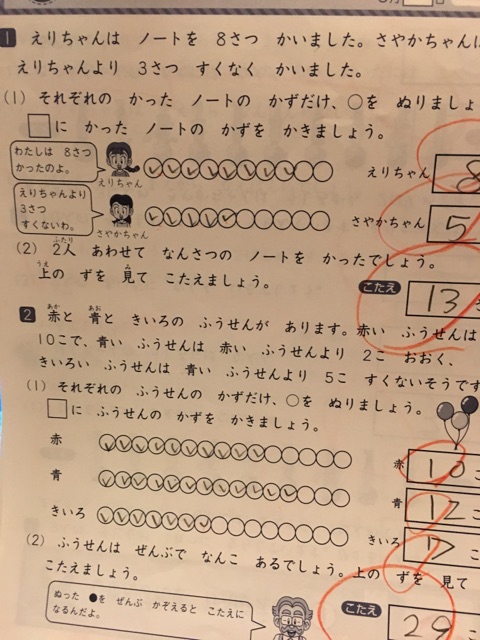 1 えりちゃんは ノートを 8さつ かいました。さやかちゃんは
えりちゃんより 3さつ すくなく かいました。
(1) それぞれの かった ノートの かずだけ、○を ぬりましょ
□に かった ノートの かずを かきましょう。
わたしは 8さつ
かったのよ。
えりちゃん
えりちゃん
8
えりちゃんより
3さつ
すくないわ。
さやかちゃん
さやかちゃん
5
(2) 2人 あわせて なんさつの ノートを かったでしょう。
上の ずを 見て こたえましょう。
こたえ
13
2 赤と 青と きいろの ふうせんが あります。赤い ふうせんは
10こで、青い ふうせんは 赤い ふうせんより 2こ おおく、
きいろい ふうせんは 青い ふうせんより 5こ すくないそうです
(1) それぞれの ふうせんの かずだけ、○を ぬりましょう。
□に ふうせんの かずを かきましょう。
赤
赤
10
こ
青
青
12
こ
きいろ
きいろ
7
こ
(2) ふうせんは ぜんぶで なんこ あるでしょう。上の ずを 見て
こたえましょう。
ぬった ●を ぜんぶ かぞえると こたえに
なるんだよ。
こたえ
29